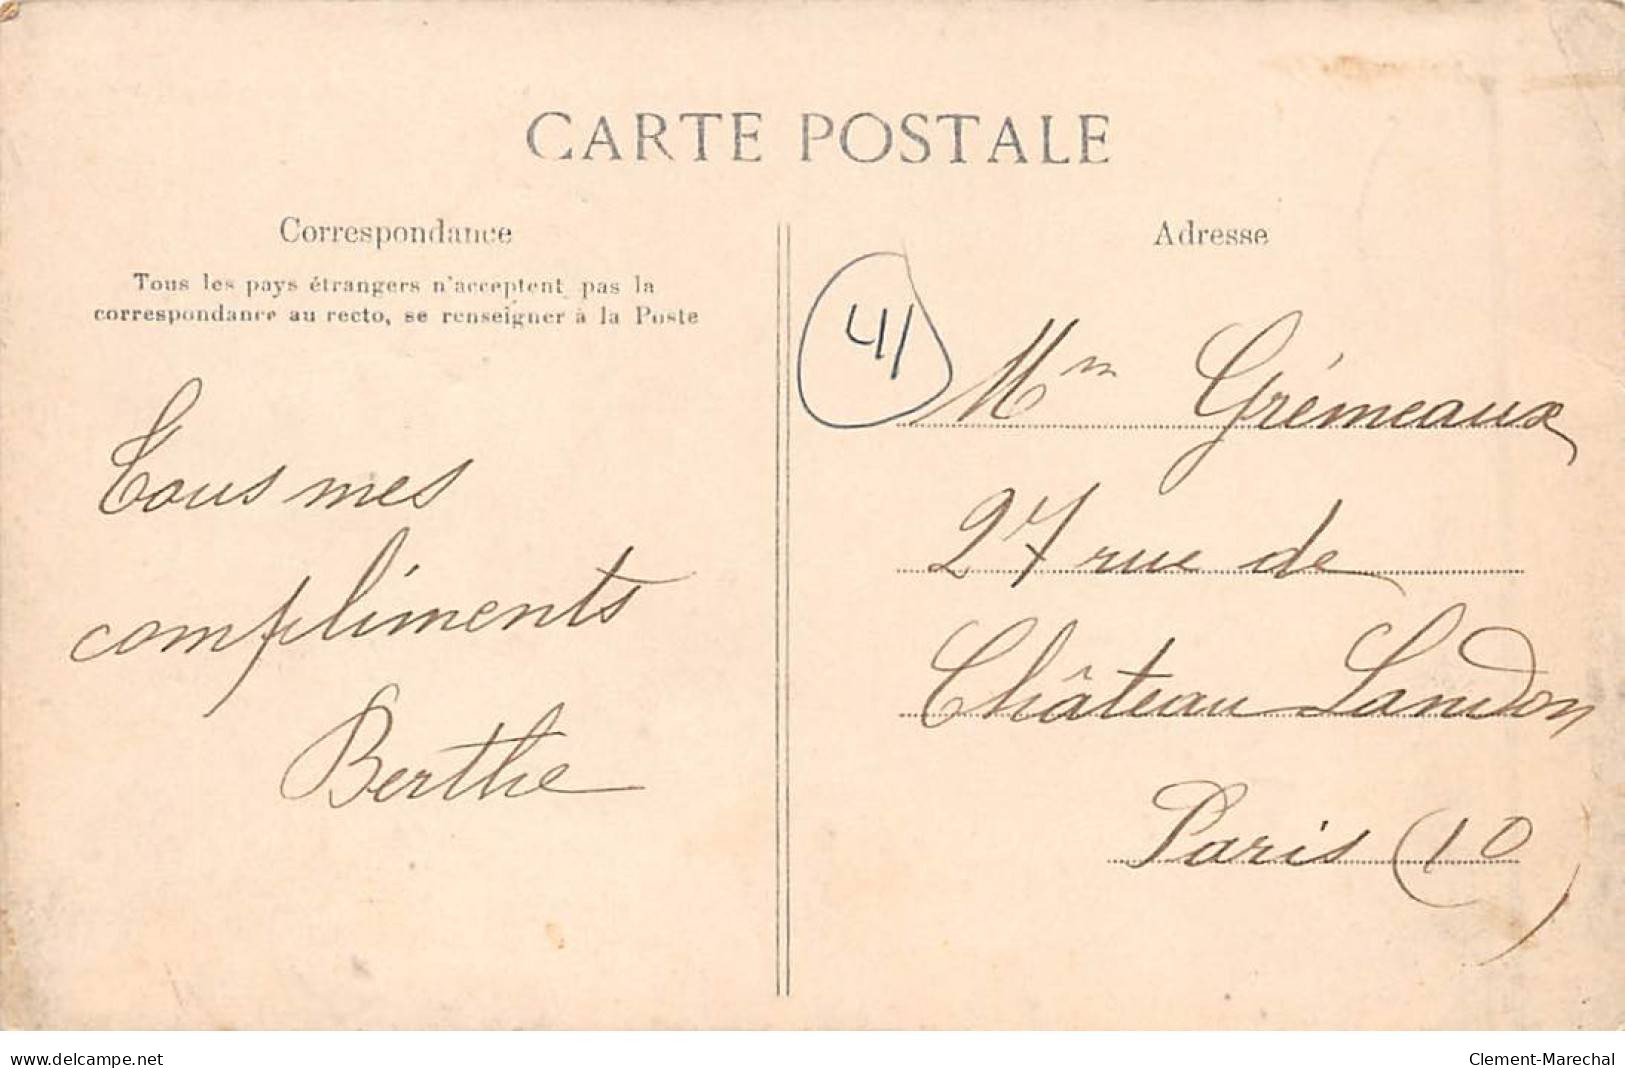 CARTE POSTALE
Correspondance
Tous les pays étrangers n'acceptent pas la
correspondance au recto, se renseigner à la Poste
Tous mes
compliments
Berthe
Adresse
41
Mm Grémeaux
27 rue de
Château Landon
Paris (10)
www.delcampe.net
Clement-Marechal